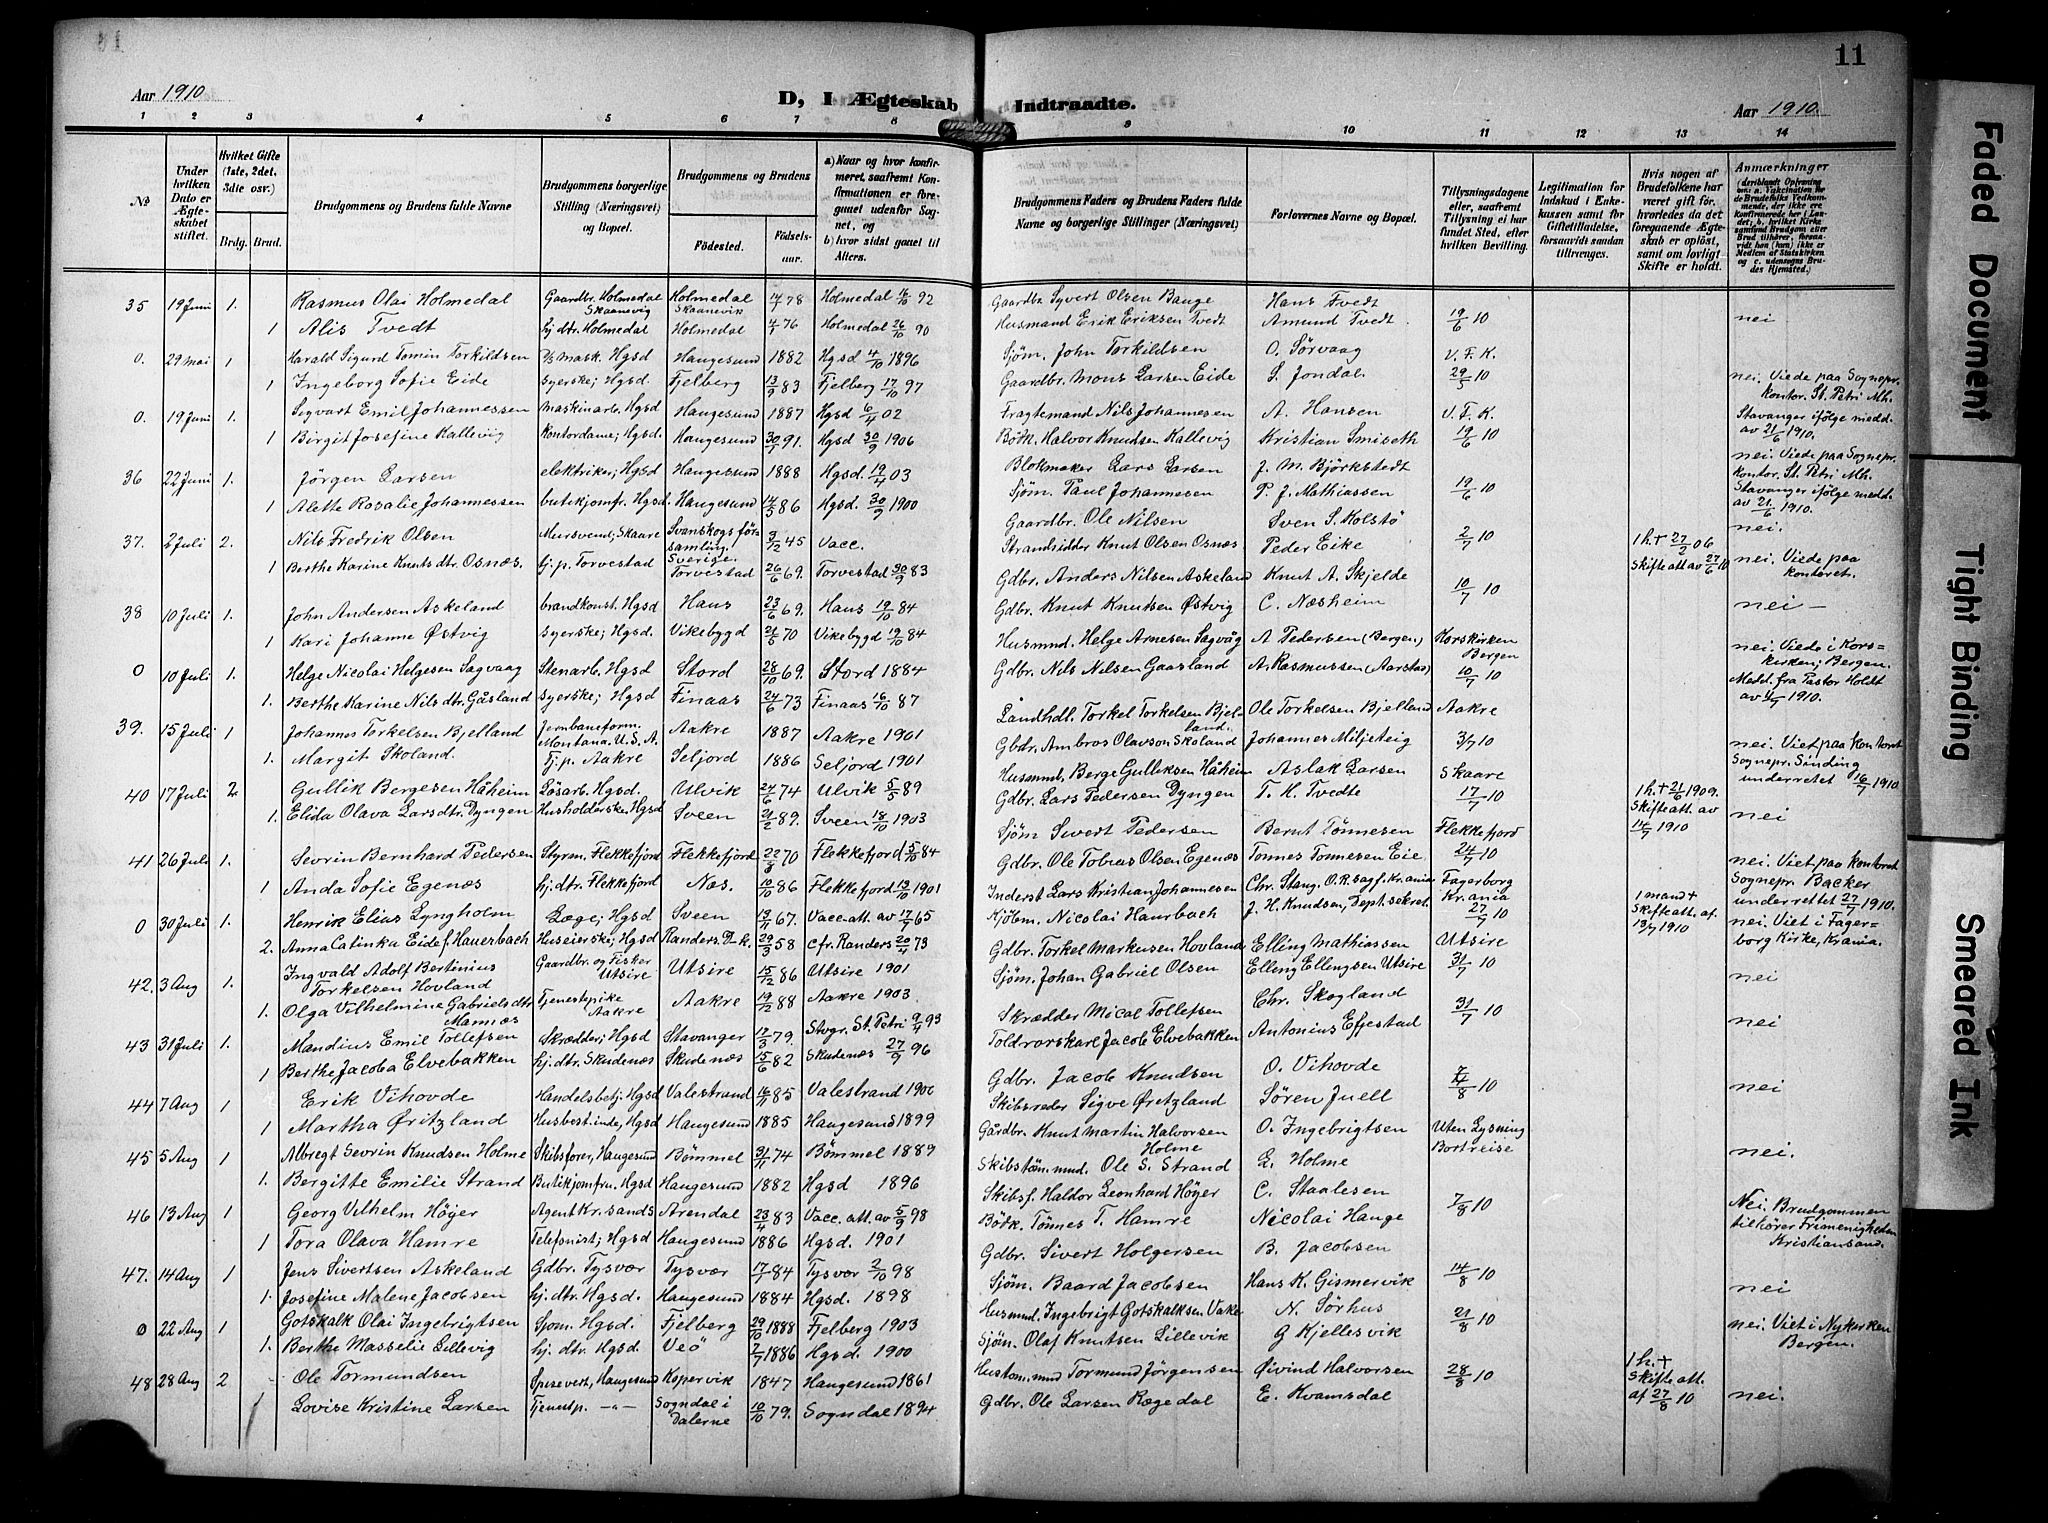 11
Aar 1910
D, I Ægteskab Indtraadte.
Aar 1910.
1 2 3 4 5 6 7 8 9 10 11 12 13 14
№
Under hvilken Dato er Ægteskabet stiftet.
Hvilket Gifte (1ste, 2det, 3die osv.)
Brdg. Brud.
Brudgommens og Brudens fulde Navne
Brudgommens borgerlige Stilling (Næringsvei) og Bopæl.
Brudgommens og Brudens
Födested.
Födselsaar.
a) Naar og hvor konfirmeret, saafremt Konfirmationen er foregaaet udenfor Sognet, og
b) hvor sidst gaaet til Alters.
Brudgommens Faders og Brudens Faders fulde Navne og borgerlige Stillinger (Næringsvei)
Forlovernes Navne og Bopæl.
Tillysningsdagene eller, saafremt Tillysning ei har fundet Sted, efter hvilken Bevilling.
Legitimation for Indskud i Enkekassen samt for Giftetilladelse, forsaavidt saadan tiltrænges.
Hvis nogen af Brudefolkene har været gift før, hvorledes da det foregaaende Ægteskab er oplöst, samt om lovligt Skifte er holdt.
Anmærkninger
35 19 Juni 1. Rasmus Olai Holmedal Gaardbr. Holmedal Skaanevig Holmedal Skaanevik 14/7 78 Holmedal 16/10 92 Gaardbr. Syvert Olsen Bauge Hans Tvedt
1 Alis Tvedt hj dtr. Holmedal Holmedal 4/3 76 Holmedal 26/10 90 Husmand Erik Eriksen Tvedt Amund Tvedt. 19/6 10 nei
0. 29 mai 1 Harald Sigurd Tomin Torkildsen D/S mask. Hgsd Haugesund 1882 Hgsd 4/10 1896 Sjøm. John Torkildsen O. Sørvaag V. F. K.
1 Ingeborg Sofie Eide syerske; Hgsd. Fjelberg 13/9 83 Fjelberg 17/10 97 Gaardbr. Mons Larsen Eide S. Jondal. 29/5 10 nei. Viede paa Sognepr. kontor. St. Petri Mh. Stavanger ifølge medd. av 21/6 1910.
0. 19 Juni 1. Sigvart Emil Johannessen Maskinarb. Hgsd Haugesund 1887 Hgsd 6/4 02 Fragtemand Nils Johannesen A. Hansen V. F. K.
1 Birgit Josefine Kallevig Kontordame; Hgsd. Haugesund 30/7 91. Hgsd 30/9 1906 Bødk. Halvor Knudsen Kallevig Kristian Smiseth 19/6 10 nei. Viede paa Sognepr. kontor. St. Petri Mh. Stavanger ifølge medd. av 21/6 1910.
36 22 Juni 1. Jörgen Larsen elektriker; Hgsd Haugesund 1888 Hgsd. 19/4 03 Blokmaker Lars Larsen J. M. Björkstedt
1 Alette Rosalie Johannessen butikjomfr. Hgsd. Haugesund 14/5 86 Hgsd. 30/9 1900 Sjøm. Paul Johannesen P. J. Mathiassen 19/6 10 nei.
37. 2 Juli 2. Nils Fredrik Olsen Mursvend; Skaare Svanskogs församling. Sverige 9/2 45 Vacc. Gaardbr. Ole Nilsen Sven S. Kolstø 2/7 10 1 h. + 27/2 06
1 Berthe Karine Knutsdtr. Osnæs. hj. p. Torvestad Torvestad 26/6 69. Torvestad 30/9 83 Strandsidder Knut Olsen Osnæs Peder Eike Skifte att av 27/6 10 nei. Viede paa kontoret.
38 10 Juli 1. John Andersen Askeland brandkonst. Hgsd Haus 23/6 69. Haus 19/10 84 Gdbr. Anders Nilsen Askeland Knut A. Skjelde 10/7 10
1 Kari Johanne Østvig syerske; Hgsd. Vikebygd 21/6 70 Vikebygd 19/10 84 Gdbr. Knut Knutsen Østvig C. Næsheim nei —
0 10 Juli 1. Helge Nicolai Helgesen Sagvaag Stenarb. Hgsd Stord 28/10 69. Stord 1884 Husmnd. Helge Arnesen Sagvåg A Pedersen (Bergen) Korskirken Bergen
1. Berthe Karine Nilsdtr. Gåsland syerske; Hgsd Finaas 24/6 73 Finaas 16/10 87 Gdbr. Nils Nilsen Gaasland A. Rasmussen (Aarstad) 10/7 10 nei. Viede i Korskirken; Bergen. Medd. fra Pastor Holdt av 11/7 1910.
39. 15 Juli 1 Johannes Torkelsen Bjelland Jernbaneform. Montana. U.S.A. Aakre 1887 Aakre 1901 Landhdl. Torkel Torkelsen Bjelland. Ole Torkelsen Bjelland Aakre
1. Margit Skoland. Tj. p. Aakre Seljord 1886 Seljord 1901 Gbdr. Ambros Olavson Skoland Johannes Miljeteig 3/7 10 nei. Viet paa kontoret Sognepr. Sinding underrettet 16/7 1910.
40 17 Juli 2 Gullik Bergesen Håheim Løsarb. Hgsd. Ulvik 27/6 74 Ulvik 5/5 89 Husmnd. Berge Gulliksen Håheim Aslak Larsen Skaare 1 h. + 21/6 1909. Skifte att. av 14/7 1910
1. Elida Olava Larsdtr. Dyngen Husholderske; Hgsd Sveen 21/2 89. Sveen 18/10 1903 Gdbr. Lars Pedersen Dyngen T. H. Tvedte 17/7 10 nei
41 26 Juli 1. Sevrin Bernhard Pedersen Styrm. Flekkefjord Flekkefjord 22/8 70 Flekkefjord 5/10 84 Sjøm Sivert Pedersen Bernt Tønnesen Flekkefjord
1 Anda Sofie Egenæs hj. dtr. Flekkefjord Nes. 10/10 86 Flekkefjord 13/10 1901 Gdbr. Ole Tobias Olsen Egenæs Tønnes Tønnesen Eie 24/7 10 nei. Viet paa kontoret Sognepr. Backer underrettet 27/7 1910.
0 30 Juli 1. Henrik Elias Lyngholm Læge; Hgsd Sveen 13/11 67. Vacc. att. av 17/7 65 Inderst Lars Kristian Johannesen Chr. Stang. O.R. sagf. Kr.ania Fagerborg Kr.ania 1 mand + Skifte att. af. 13/7 1910
2. Anna Catinka Eide f. Hauerbach Huseierske; Hgsd Randers. D-k. 29/3 58 Cfr. Randers 20/4 73 Kjøbm. Nicolai Haurbach J. H. Knudsen, Dept. sekret. 27/7 10 nei. Viet i Fagerborg Kirke, Kr.ania.
42. 3 Aug 1. Ingvald Adolf Bertinius Torkelsen Hovland Gaardbr. og Fisker Utsire Utsire 15/2 86 Utsire 1901 Gdbr. Torkel Markusen Hovland Elling Mathiassen Utsire
1. Olga Vilhelmine Gabrielsdtr Mannæs Tjenestepike Aakre Aakre 19/2 88 Aakre 1903. Sjøm. Johan Gabriel Olsen Elling Ellingsen Utsire 31/7 10 nei
43 31 Juli 1. Mandius Emil Tollefsen Skrædder; Hgsd Stavanger 17/3 79. Stvgr. St. Petri 9/4 93 Skrædder Mical Tollefsen Chr. Skogland 31/7 10
1 Berthe Jacoba Elvebakken hj. dtr. Skudenæs Skudenæs 15/6 82 Skudenæs 27/9 96 Toldrorskarl Jacob Elvebakken Antonius Effestad nei
44 7 Aug 1 Erik Vihovde Handelsbetj. Hgsd Valestrand 16/11 85 Valestrand 1900 Gdbr. Jacob Knudsen O. Vihovde 7/8 10
1 Martha Øritzland Husbest.inde, Hgsd Haugesund 1885 Haugesund 1899 Skibsreder Sigve Øritzland Søren Juell nei
45 5 Aug 1 Albregt Sevrin Knudsen Holme Skibsfører, Haugesund Bømmel 31/11 74 Bømmel 1889 Gårdbr. Knut Martin Halvorsen Holme O. Ingebrigtsen Uten Lysning Bortreise
1. Bergitte Emilie Strand Butikjomfru, Hgsd Haugesund 1882 Hgsd 1896 Skibstøm. mnd. Ole S. Strand L. Holme nei.
46 13 Aug 1 Georg Vilhelm Høyer Agent Kr.sands Arendal 23/4 83 Vacc. att. av 5/9 98 Skibsf. Haldor Leonhard Høyer C. Staalesen 7/8 10
1 Tora Olava Hamre Telefonist; Hgsd Haugesund 1886 Hgsd. 1901 Bødk. Tønnes T. Hamre Nicolai Hauge Nei. Brudgommen tilhører Frimenigheden Kristiansand.
47. 14 Aug 1 Jens Sivertsen Askeland Gdbr. Tysvær Tysvær 17/7 84 Tysvær 2/10 98 Gdbr. Sivert Holgersen B. Jacobsen 14/8 10
1. Josefine Malene Jacobsen hj. dtr. Hgsd. Haugesund 1884 Hgsd. 1898 Sjøm. Baard Jacobsen Hans K. Gismervik nei
0 22 Aug 1 Gotskalk Olai Ingebrigtsen Sjøm. Hgsd. Fjelberg 29/10 1888 Fjelberg 1903 Husmnd. Ingebrigt Gotskalksen Vake N. Sørhus 21/8 10
1. Berthe Masselie Lillevig hj. dtr. Hgsd. Veö 2/7 1886 Hgsd. 1900 Sjøm. Olaf Knutsen Lillevik G Kjellesvik nei. Viet i Nykirken Bergen.
48 28 Aug 2 Ole Tormundsen Spisevert, Haugesund Kopervik 1847 Haugesund 1861 Hustøm. mnd Tormund Jörgensen Øivind Halvorsen 28/8 10 1 h. + Skifte att. af 27/8 10
1 Lovise Kristine Larsen Tjenestp. —"— Sogndal i Dalerne 10/10 79. Sogndal 1894 Gdbr. Ole Larsen Rægedal E. Kvamsdal nei.
Faded Document
Tight Binding
Smeared Ink